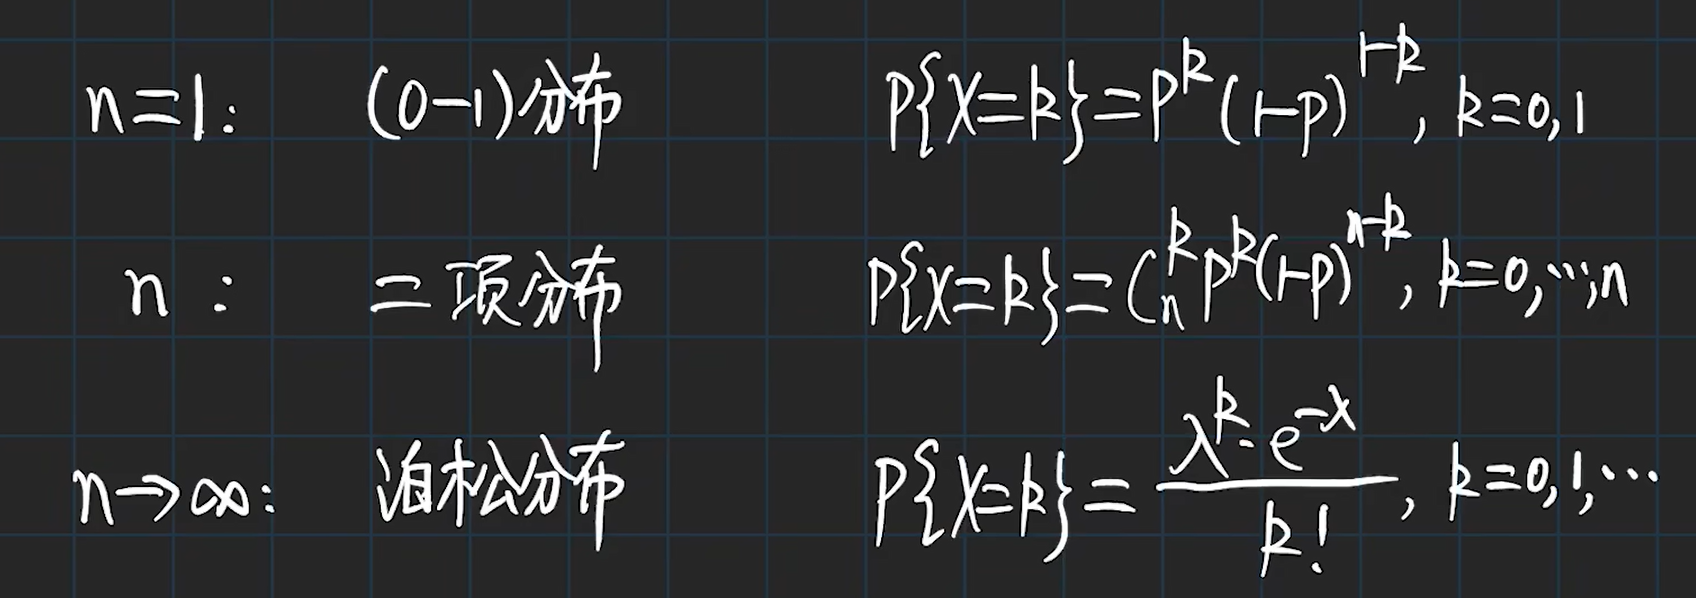 n=1: (0-1)分布 P{X=k}=P^k(1-P)^{1-k}, k=0,1
n : 二项分布 P{X=k}=C_n^k P^k(1-P)^{n-k}, k=0,…,n
n→∞: 泊松分布 P{X=k}=\frac{λ^k·e^{-λ}}{k!}, k=0,1,…